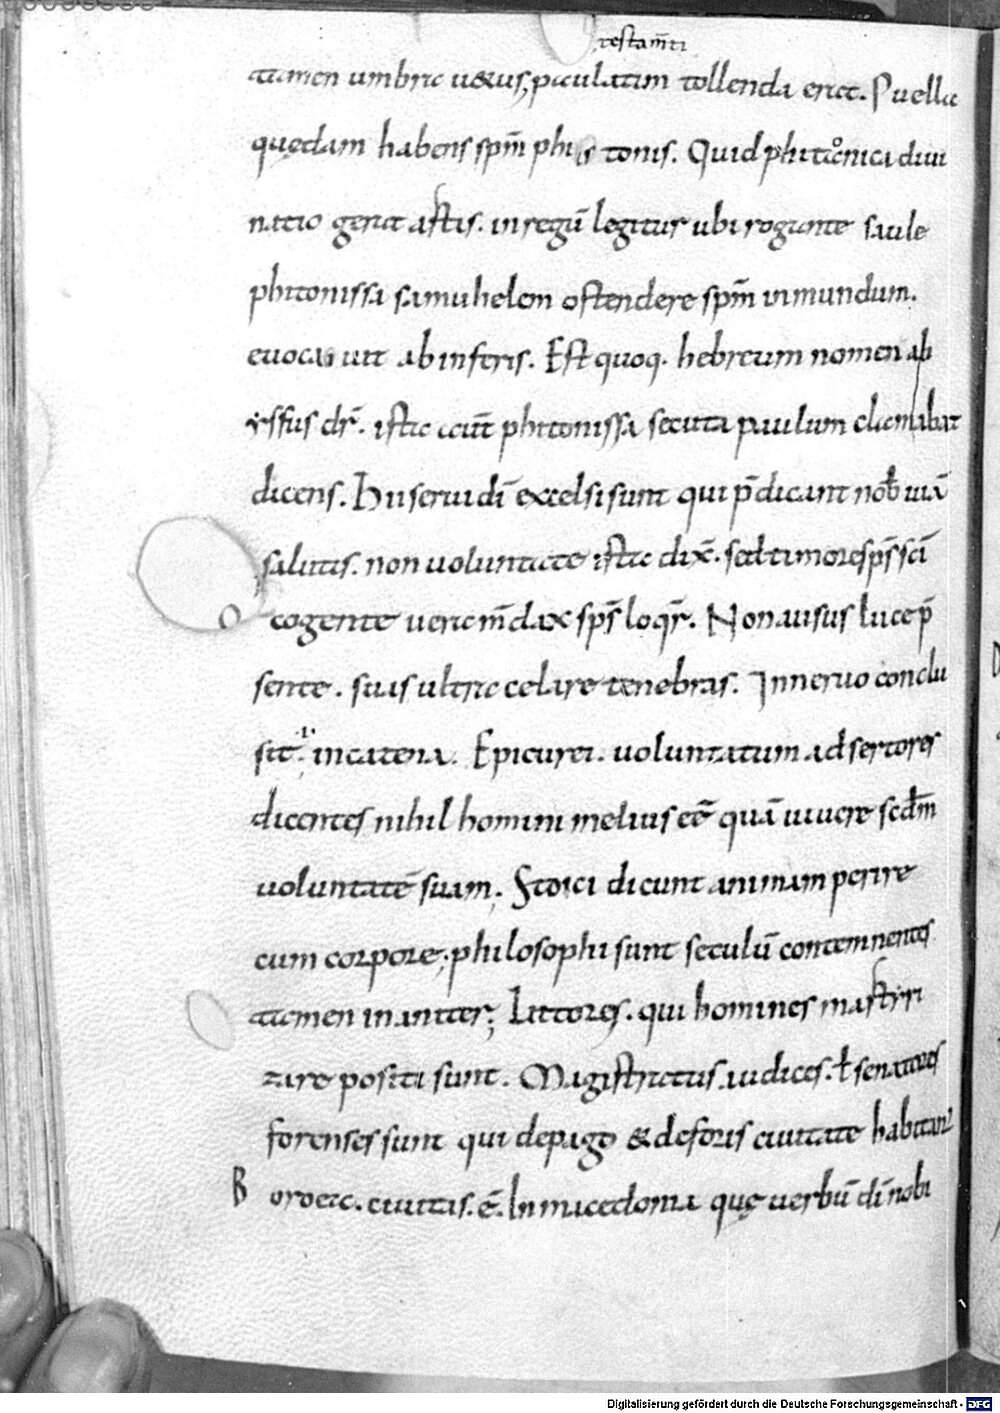 testam̄ti
tamen umbra uetus; paulatim tollenda erat. Puella
quędam habens spm̄ phi tonis. Quid phitonica diui
natio gerat astis. in regū legitur ubi rogante saule
phitonissa samuhelem ostendere spm̄ inmundum.
euocauit ab inferis. Est quoq. hebreum nomen ab
yssus dr̄. ista aut̄ phitonissa secuta paulum clamabat
dicens. Hii serui dī excelsi sunt qui p̄dicant nob̄ uiā
salutis. non uoluntate ista dix̄. sed timore sps̄ scī
O cogente uera m̄dax sps̄ loqr̄. Non ausus luce p̄
sente. suas ultra celare tenebras. In neruo conclu
sit. ł in catena. Epicurei. uoluntatum adsertores
dicentes nihil homini melius eē quā uiuere scdm̄
uoluntatē suam; Stoici dicunt animam perire
cum corpore; philosophi sunt seculū contemnentes
tamen inaniter; Littores. qui homines mastiri
zare positi sunt. Magistratus. iudices. ł senatores
forenses sunt qui de pago & deforis ciuitate habitant
B oroea. ciuitas. ē. In macedonia quę uerbū dī nobi
Digitalisierung gefördert durch die Deutsche Forschungsgemeinschaft - DFG